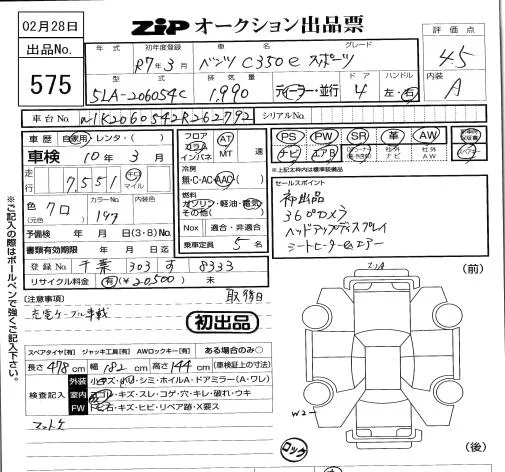 02月28日
ZiP オークション出品票
評価点
4.5
内装
A
出品No.
575
年式 初年度登録 車名 グレード
R7年3月 ベンツ C350e スポーツ
型式 排気量 ドア ハンドル
5LA-206054C 1,990 ディーラー・並行 4 左・右
車台No. W1K2060542R262792 シリアルNo.
車歴 自家用・レンタ・( )
車検 10年3月
走行 7,551 キロ マイル
色 クロ カラーNo. 197 内装色
(元色)
予備検 年 月 日(3・8)No.
書類有効期限 年 月 日迄
登録No. 千葉 303 す 8333
リサイクル料金 有(¥20500) 未
フロア AT
コラム
インパネ MT 速
冷房
無・C・AC・AAC
燃料
ガソリン・軽油・電気
その他( )
Nox 適合・非適合
乗車定員 5名
PS PW SR 革 AW
ナビ エアB 社外ナビ 社外AW
※上記太枠内は標準装備品
セールスポイント
初出品
360°カメラ
ヘッドアップディスプレイ
シートヒーター&エアー
(注意事項) 取、保、自
充電ケーブル車載
初出品
スペアタイヤ[有] ジャッキ工具[有] AWロックキー[有] ある場合のみ○
長さ478cm 幅182cm 高さ144cm (車検証上の寸法)
検査記入
外装 小キズ・小凹・シミ・ホイルA・ドアミラー(A・ワレ)
室内 ヨゴレ・キズ・スレ・コゲ・穴・キレ・破れ・ウキ
FW トビ石・キズ・ヒビ・リペア跡・X要ス
マットケ
(前)
W2
(後)
ロック
※ご記入の際はボールペンで強くご記入下さい。